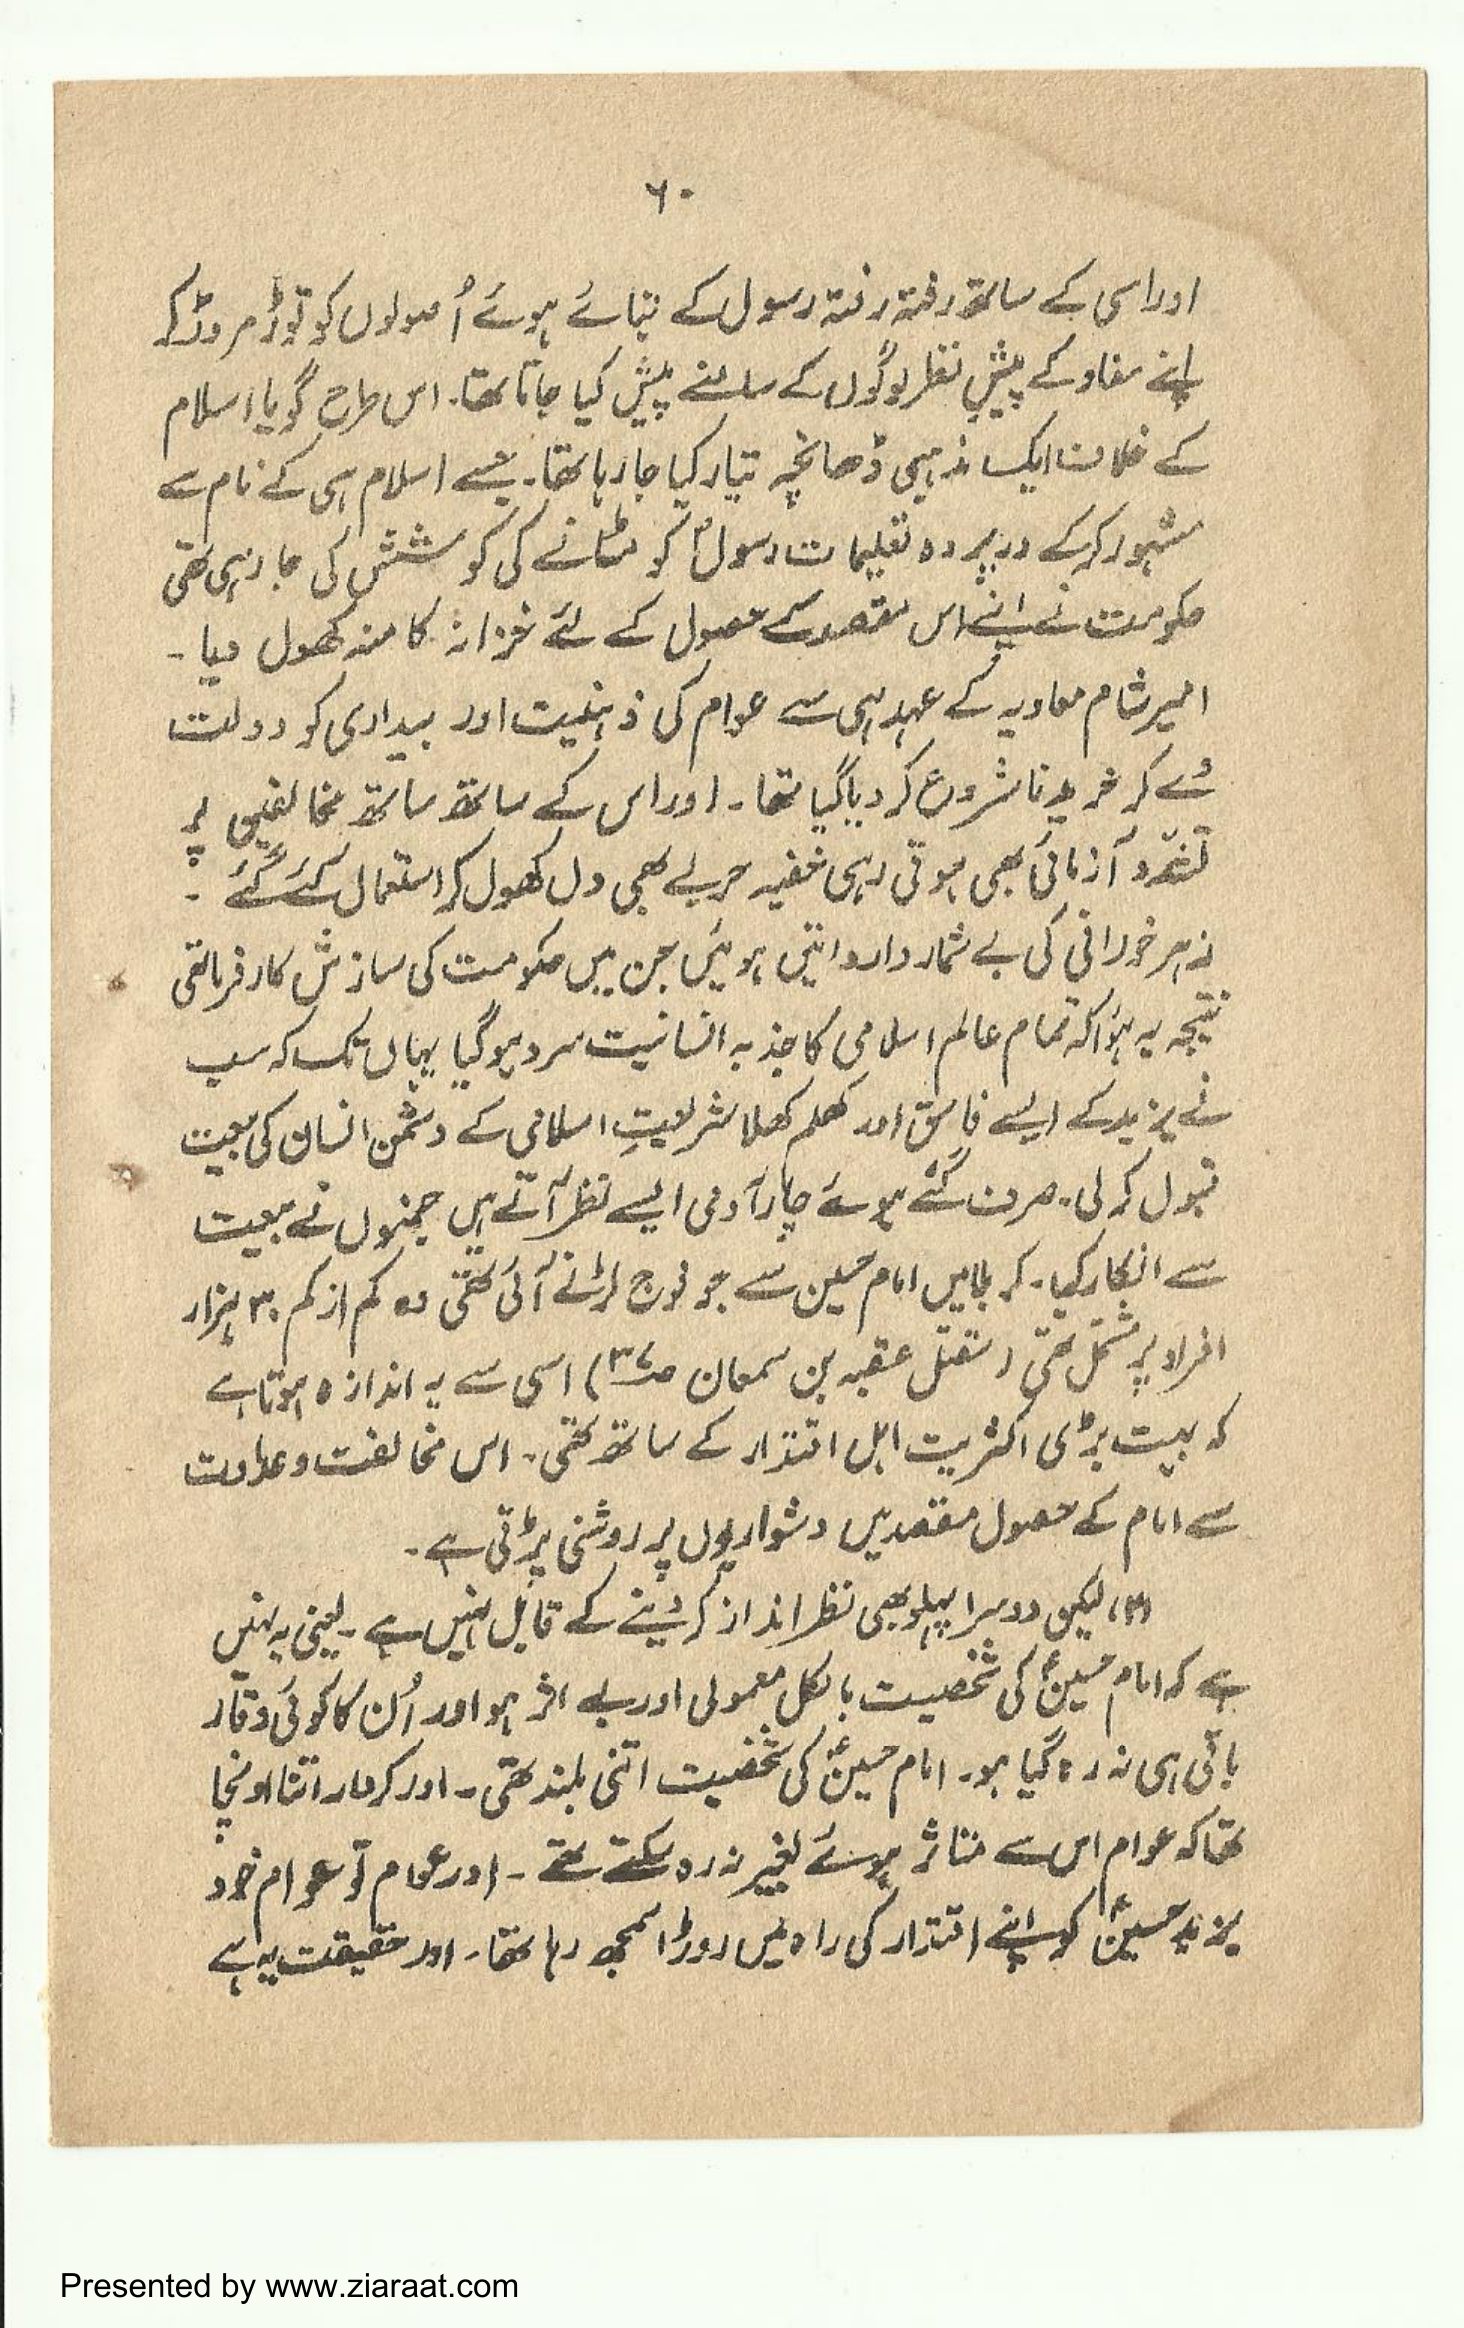 ۶۰
اور اسی کے ساتھ رفتہ رفتہ رسول کے بتائے ہوئے اُصولوں کو توڑ مروڑ کر
اپنے مفاد کے پیشِ نظر لوگوں کے سامنے پیش کیا جاتا تھا۔ اس طرح گویا اسلام
کے خلاف ایک مذہبی ڈھانچہ تیار کیا جا رہا تھا۔ جسے اسلام ہی کے نام سے
مشہور کر کے در پردہ تعلیمات رسولؐ کو مٹانے کی کوشش کی جا رہی تھی
حکومت نے اپنے اس مقصد کے حصول کے لئے خزانہ کا منہ کھول دیا۔
امیر شام معاویہ کے عہد ہی سے عوام کی ذہنیت اور بیداری کو دولت
دے کر خریدنا شروع کر دیا گیا تھا۔ اور اس کے ساتھ ساتھ مخالفین پر
تشدد آزمائی بھی ہوتی رہی خفیہ حربے بھی دل کھول کر استعمال کئے گئے۔
زہر خورانی کی بے شمار وارداتیں ہوئیں جن میں حکومت کی سازش کار فرما تھی
نتیجہ یہ ہؤا کہ تمام عالم اسلامی کا جذبہ انسانیت سرد ہو گیا یہاں تک کہ سب
نے یزید کے ایسے فاسق اور کھلم کھلا شریعتِ اسلامی کے دشمن انسان کی بیعت
قبول کر لی۔ صرف گنے ہوئے چار آدمی ایسے نظر آتے ہیں جنہوں نے بیعت
سے انکار کیا۔ کربلا میں امام حسین سے جو فوج لڑنے آئی تھی وہ کم از کم ۳۰ ہزار
افراد پر مشتمل تھی (مقتل عقبہ بن سمعان ) اسی سے یہ اندازہ ہوتا ہے
کہ بہت بڑی اکثریت اہل اقتدار کے ساتھ تھی۔ اس مخالفت و عداوت
سے امام کے حصول مقصد میں دشواریوں پر روشنی پڑتی ہے۔
(۳) لیکن دوسرا پہلو بھی نظر انداز کر دینے کے قابل نہیں ہے۔ یعنی یہ نہیں
ہے کہ امام حسینؑ کی شخصیت بالکل معمولی اور بے اثر ہو اور اُن کا کوئی وقار
باقی ہی نہ رہ گیا ہو۔ امام حسینؑ کی شخصیت اتنی بلند تھی۔ اور کردار اتنا اونچا
تھا کہ عوام اس سے متاثر ہوئے بغیر نہ رہ سکتے تھے۔ اور عوام تو عوام خود
یزید حسینؑ کو اپنے اقتدار کی راہ میں روڑا سمجھ رہا تھا۔ اور حقیقت یہ ہے
Presented by www.ziaraat.com